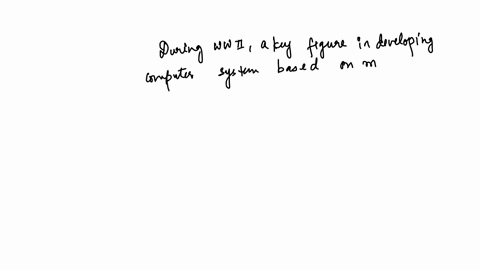 During WWII, a key figure in developing
computer system based on m